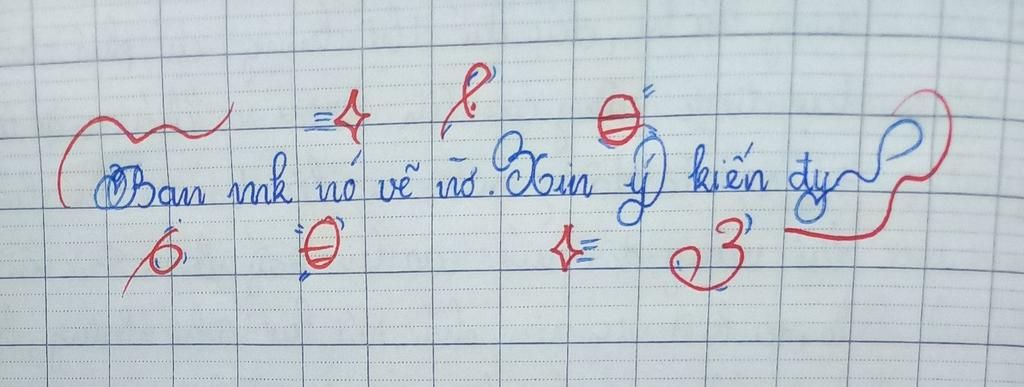 Bạn mk nó vẽ nó. Xin ý kiến dy